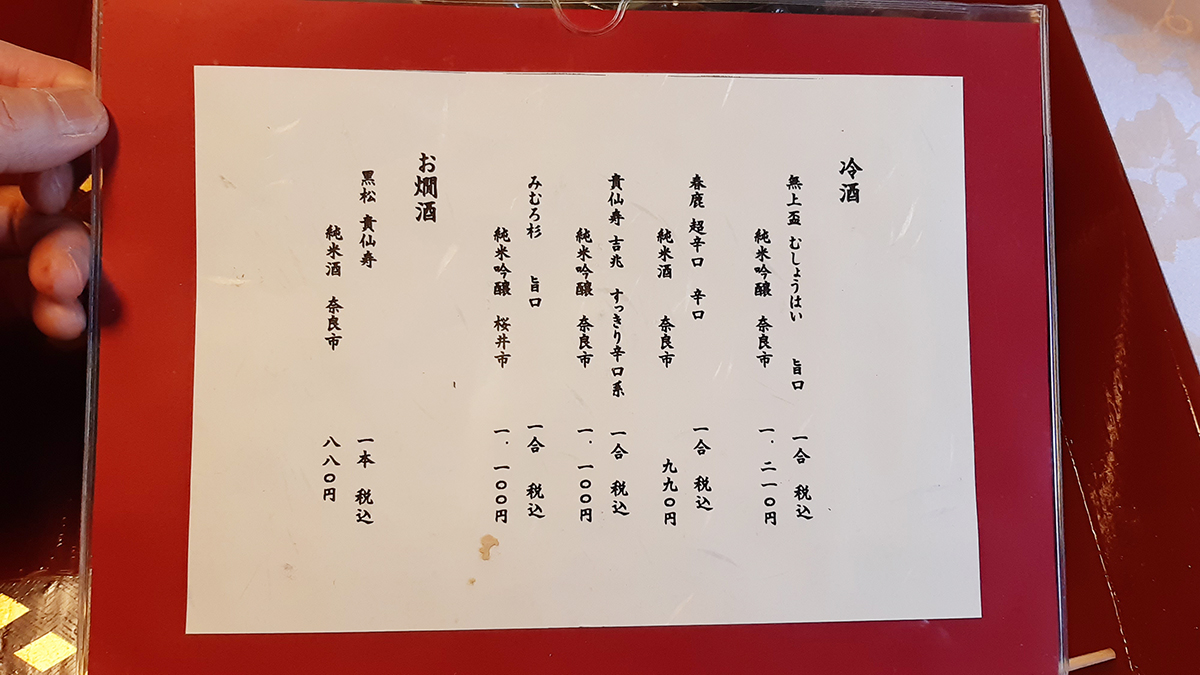 冷酒
無上盃 むしょうはい 旨口 一合 税込
純米吟醸 奈良市 一.二一〇円
春鹿 超辛口 辛口 一合 税込
純米酒 奈良市 九九〇円
貴仙寿 吉兆 すっきり辛口系 一合 税込
純米吟醸 奈良市 一.一〇〇円
みむろ杉 旨口 一合 税込
純米吟醸 桜井市 一.一〇〇円
お燗酒
黒松 貴仙寿 一本 税込
純米酒 奈良市 八八〇円